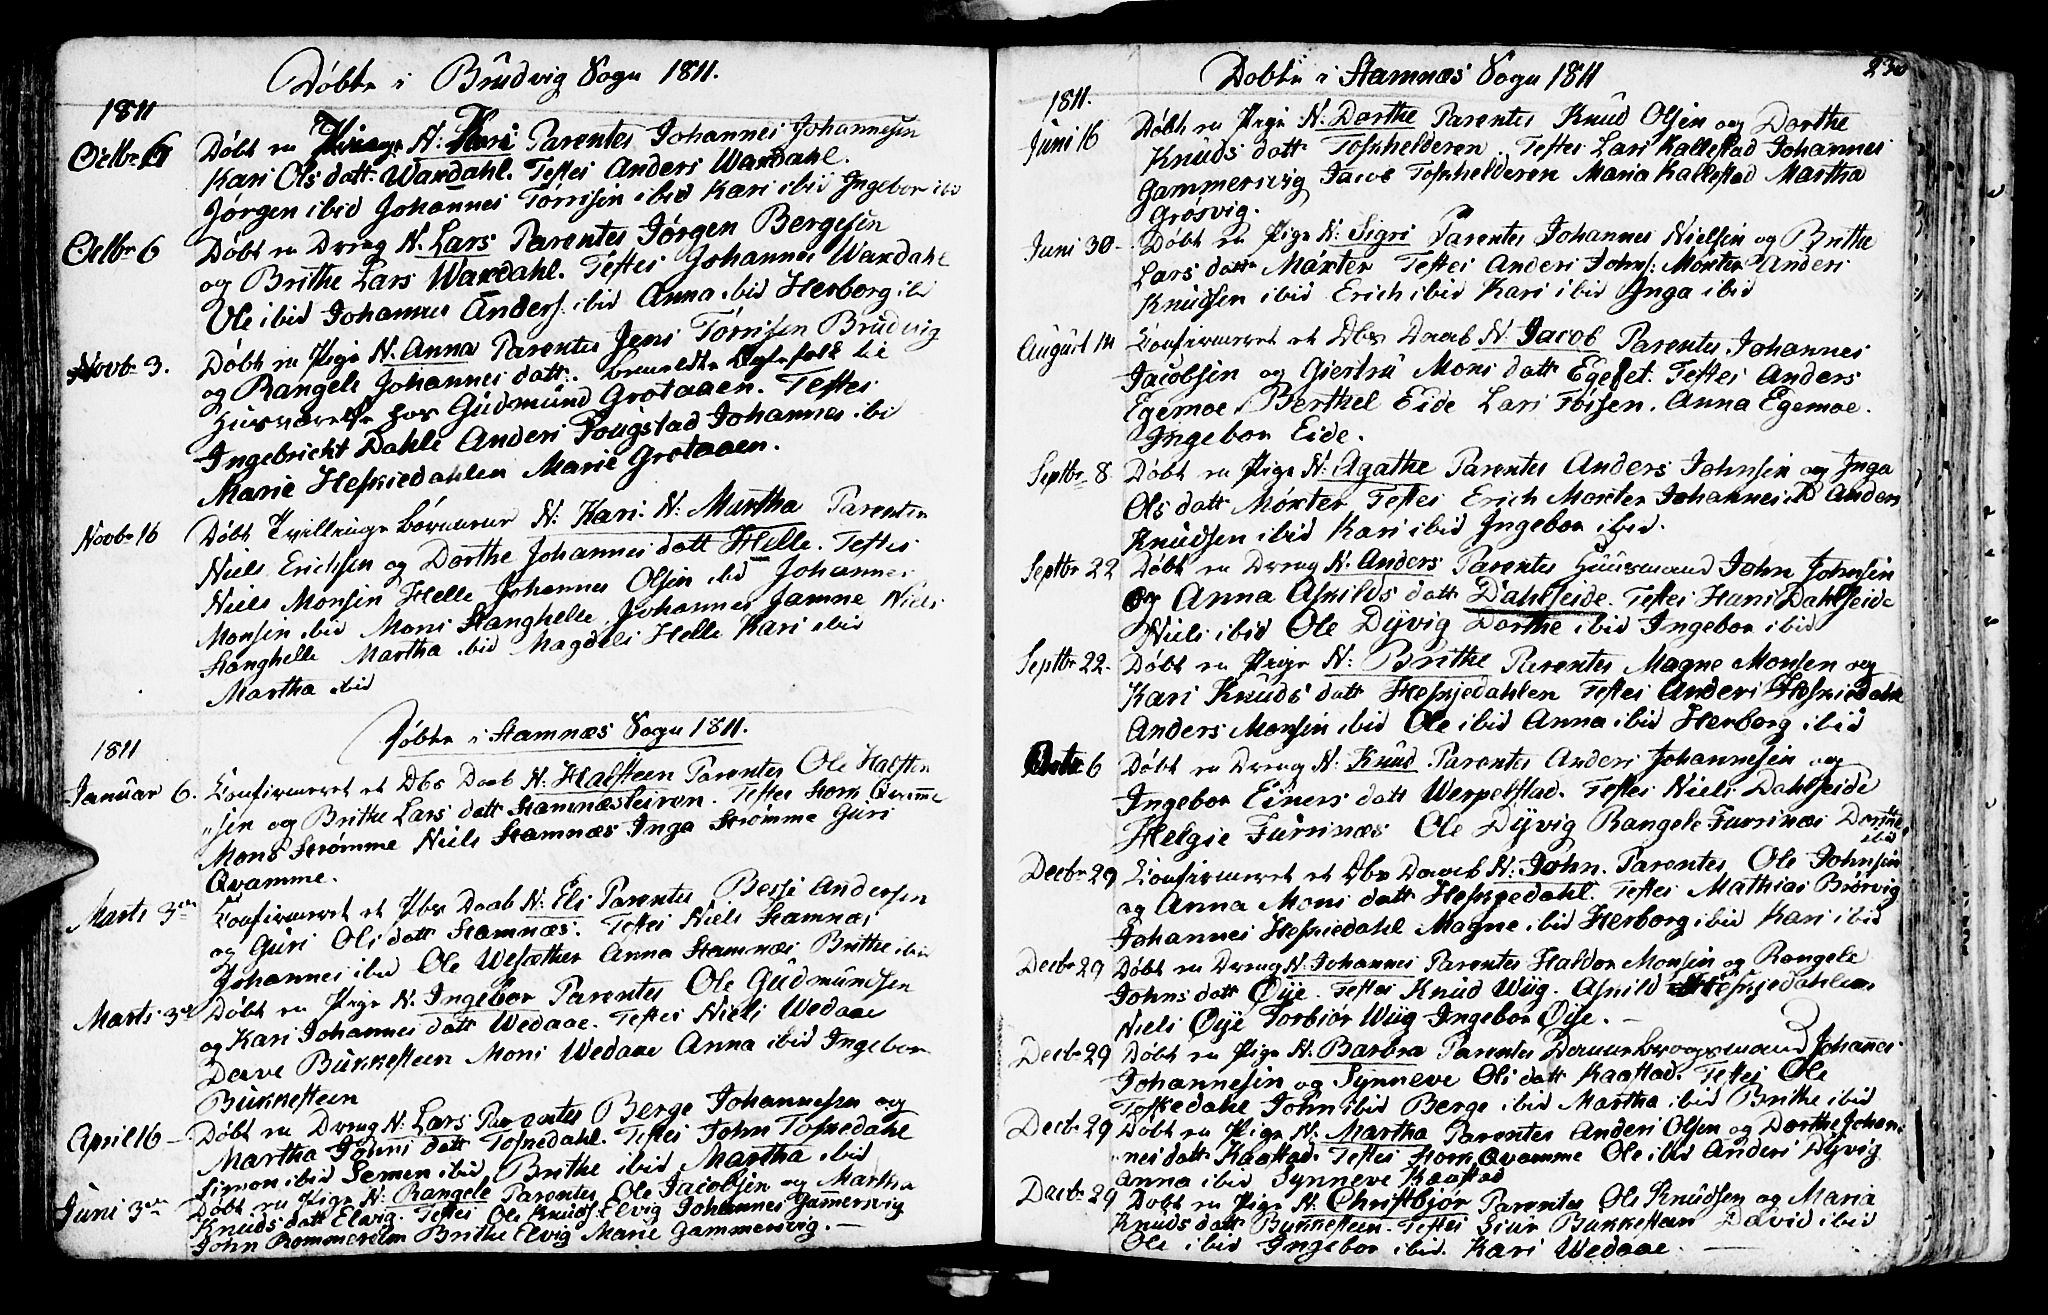 Døbte i Brudvig Sogn 1811.
1811
Octbr 6 Døbt en Pige N: Kari Parentes Johannes Johannesen
Kari Ols datt Wardahl. Testes Anders Wardahl.
Jørgen ibid Johannes Torrisen ibid Kari ibid Ingebor ibid
Octbr 6 Døbt en Dreng N. Lars Parentes Jørgen Bergesen
og Brithe Lars Wardahl. Testes Johannes Wardahl
Ole ibid Johannes Anders. ibid Anna ibid Herborg ibid
Novbr 3. Døbt en Pige N. Anna Parentes Jens Torrisen Brudvig
og Rangele Johannes datt. til
Huusværelse hos Gudmund Grotaaen. Testes
Ingebricht Dahle Anders Fougstad Johannes ibid
Marie Heskiedahlen Marie Grotaaen.
Novbr 16 Døbt Tvillinge N: Kari N: Martha Parentes
Niels Erichsen og Dorthe Johannes datt Helle. Testes
Niels Monsen Helle Johannes Olsen ibid Johannes
Monsen ibid Mons Stanghelle Johannes Jamne Niels
Stanghelle Martha ibid Magdeli Helle Kari ibid
Martha ibid
Døbte i Stamnæs Sogn 1811.
1811
Januar 6. Confirmeret et Dbs Daab N: Halsteen Parentes Ole Halsten
sen og Brithe Lars datt Stamnæsleiren. Testes Stork Qvamme
Mons Strømme Niels Stamnæs Inga Strømme Guri
Qvamme.
Marts 3die Confirmeret et Pbs Daab N: Eli Parentes Bessi Andersen
og Guri Ols datt Stamnæs. Testes Niels Stamnæs
Johannes ibid Ole Wesæther Anna Stamnæs Brithe ibid
Marts 3die Døbt en Pige N. Ingebor Parentes Ole Gudmundsen
og Kari Johannes datt Wedaae. Testes Niels Wedaae
Dave Bukkesteen Mons Wedaae Anna ibid Ingebor
Bukkesteen
April 16 Døbt en Dreng N: Lars Parentes Berge Johannesen og
Martha Johns datt Toskedahl. Testes John Toskedahl
Simon ibid Semen ibid Brithe ibid Martha ibid
Juni 3die Døbt en Pige N: Rangele Parentes Ole Jacobsen og Martha
Knuds datt Elvig. Testes Ole Knuds. Elvig Johannes Gammersvig
John Rommereim Brithe Elvig Marie Gammersvig.
Døbte i Stamnæs Sogn 1811
230
1811.
Juni 16 Døbt en Pige N: Dorthe Parentes Knud Olsen og Dorthe
Knuds datt Toskhelderen. Testes Lars Kallestad Johannes
Gammersvig Jacob Toskhelderen Maria Kallestad Martha
Grøsvig.
Juni 30 Døbt en Pige N: Sigri Parentes Johannes Nielsen og Brithe
Lars datt Moxter Testes Anders Johns: Moxter Anders
Knudsen ibid Erich ibid Kari ibid Inga ibid
August 14 Confirmeret et Dbs Daab N: Jacob Parentes Johannes
Jacobsen og Giertru Mons datt Egeset. Testes Anders
Egemoe Berthel Eide Lars Forsen. Anna Egemoe.
Ingebor Eide.
Septbr 8 Døbt en Pige N: Agathe Parentes Anders Johnsen og Inga
Ols datt Moxter Testes Erich Moxter Johannes ibid Anders
Knudsen ibid Kari ibid Ingebor ibid.
Septbr 22 Døbt en Dreng N. Anders Parentes Huusmand John Johnsen
og Anna Askilds datt Dahlseide. Testes Hans Dahlseide
Niels ibid Ole Dyvig Dorthe ibid Ingebor ibid
Septbr 22. Døbt en Pige N: Brithe Parentes Magne Monsen og
Kari Knuds datt Heskjedahlen Testes Anders Heskiedahl
Anders Monsen ibid Ole ibid Anna ibid Herborg ibid
Octbr 6 Døbt en Dreng N: Knud Parentes Anders Johannesen og
Ingebor Einers datt Werpelstad. Testes Niels Dahlseide
Helgie Furrinæs Ole Dyvig Rangele Furrinæs Dorthe
ibid
Decbr 29 Confirmeret et Dbs Daab N: John. Parentes Ole Johnsen
og Anna Mons datt Heskjedahl. Testes Mathias Brørvig
Johannes Heskiedahl Magne ibid Herborg ibid Kari ibid
Decbr 29 Døbt en Dreng N. Johannes Parentes Haldor Monsen og Rangele
Johns datt Øye. Testes Knud Wiig. Askild Heskjedahlen
Niels Øye Torbiør Wiig Ingebor Øye.
Decbr 29 Døbt en Pige N. Barbra Parentes Johannes
Johannesen og Synneve Ols datt Kaastad. Testes Ole
Toskedahl John ibid Berge ibid Martha ibid Brithe ibid
Decbr 29 Døbt en Pige N: Martha Parentes Anders Olsen og Dorthe Johan
nes datt Kaastad. Testes Stork Qvamme Ole ibid Anders Dyvig
Anna ibid Synneve Kaastad
Decbr 29 Døbt en Pige N: Christbjør Parentes Ole Knudsen og Maria
Knuds datt Bukkesteen. Testes Siur Bukkesteen David ibid
Ole ibid Ingebor ibid. Kari Wedaae.